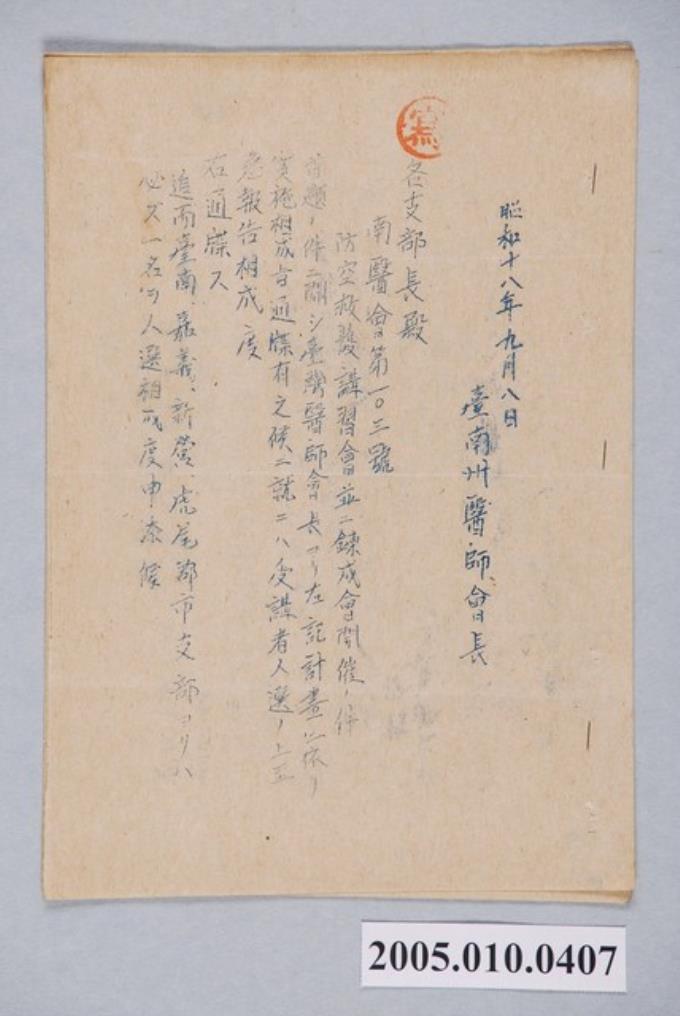 昭和十八年九月八日
臺南州醫師會長
各支部長殿
南醫會第一〇三號
防空救護講習會並ニ鍊成會開催ノ件
首題ノ件ニ關シ臺灣醫師會長ヨリ左記計畫ニ依リ
實施相成旨通牒有之候ニ就テハ受講者人選ノ上至
急報告相成度
右通牒ス
追而臺南、嘉義、新營、虎尾郡市支部ヨリハ
必ズ一名ヅツ人選相成度申添候
2005.010.0407